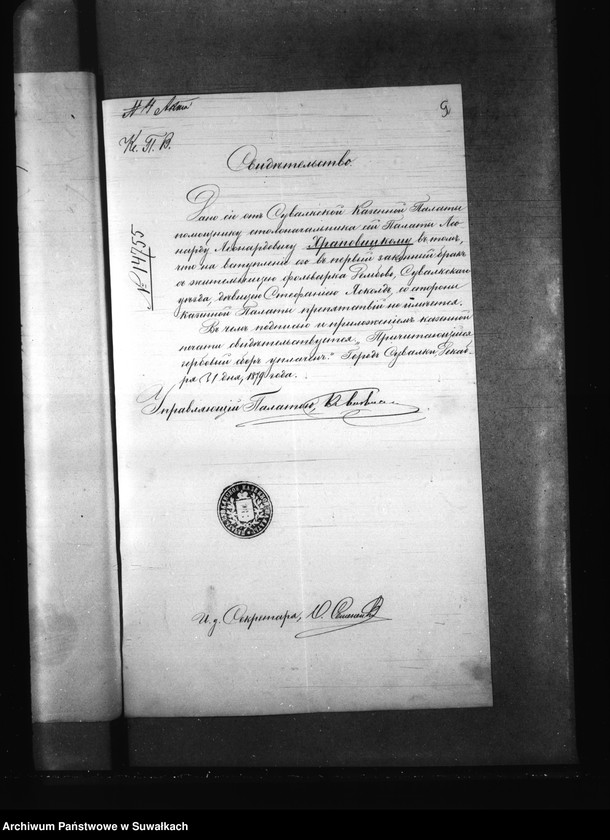 № 14
9
Кс. П. В.
Свидѣтельство.
№ 14755
Дано сіе отъ Сувалкской Казенной Палаты
помощнику столоначальника сей Палаты Лео-
нарду Леонардовичу Храповицкому въ томъ,
что на вступленіе его въ первый законный бракъ
съ жительницею фольварка Рембово, Сувалкскаго
уѣзда, дѣвицею Стефаніею со стороны
казенной Палаты препятствій не имѣется.
Въ чемъ подписью и приложеніемъ казенной
печати свидѣтельствуется. „Причитающійся
гербовый сборъ уплаченъ." Городъ Сувалки, Декаб-
ря 21 дня, 1879 года.
Управляющій Палатою,
И. д. Секретаря,
Archiwum Państwowe w Suwałkach